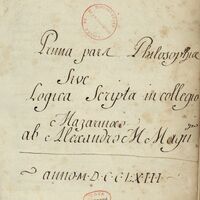 Prima pars Philosophiæ
Sive
Logica Scripta in collegio
Mazarinæo
ab Alexandro M Magin
ANNO M.D.CCLXIII